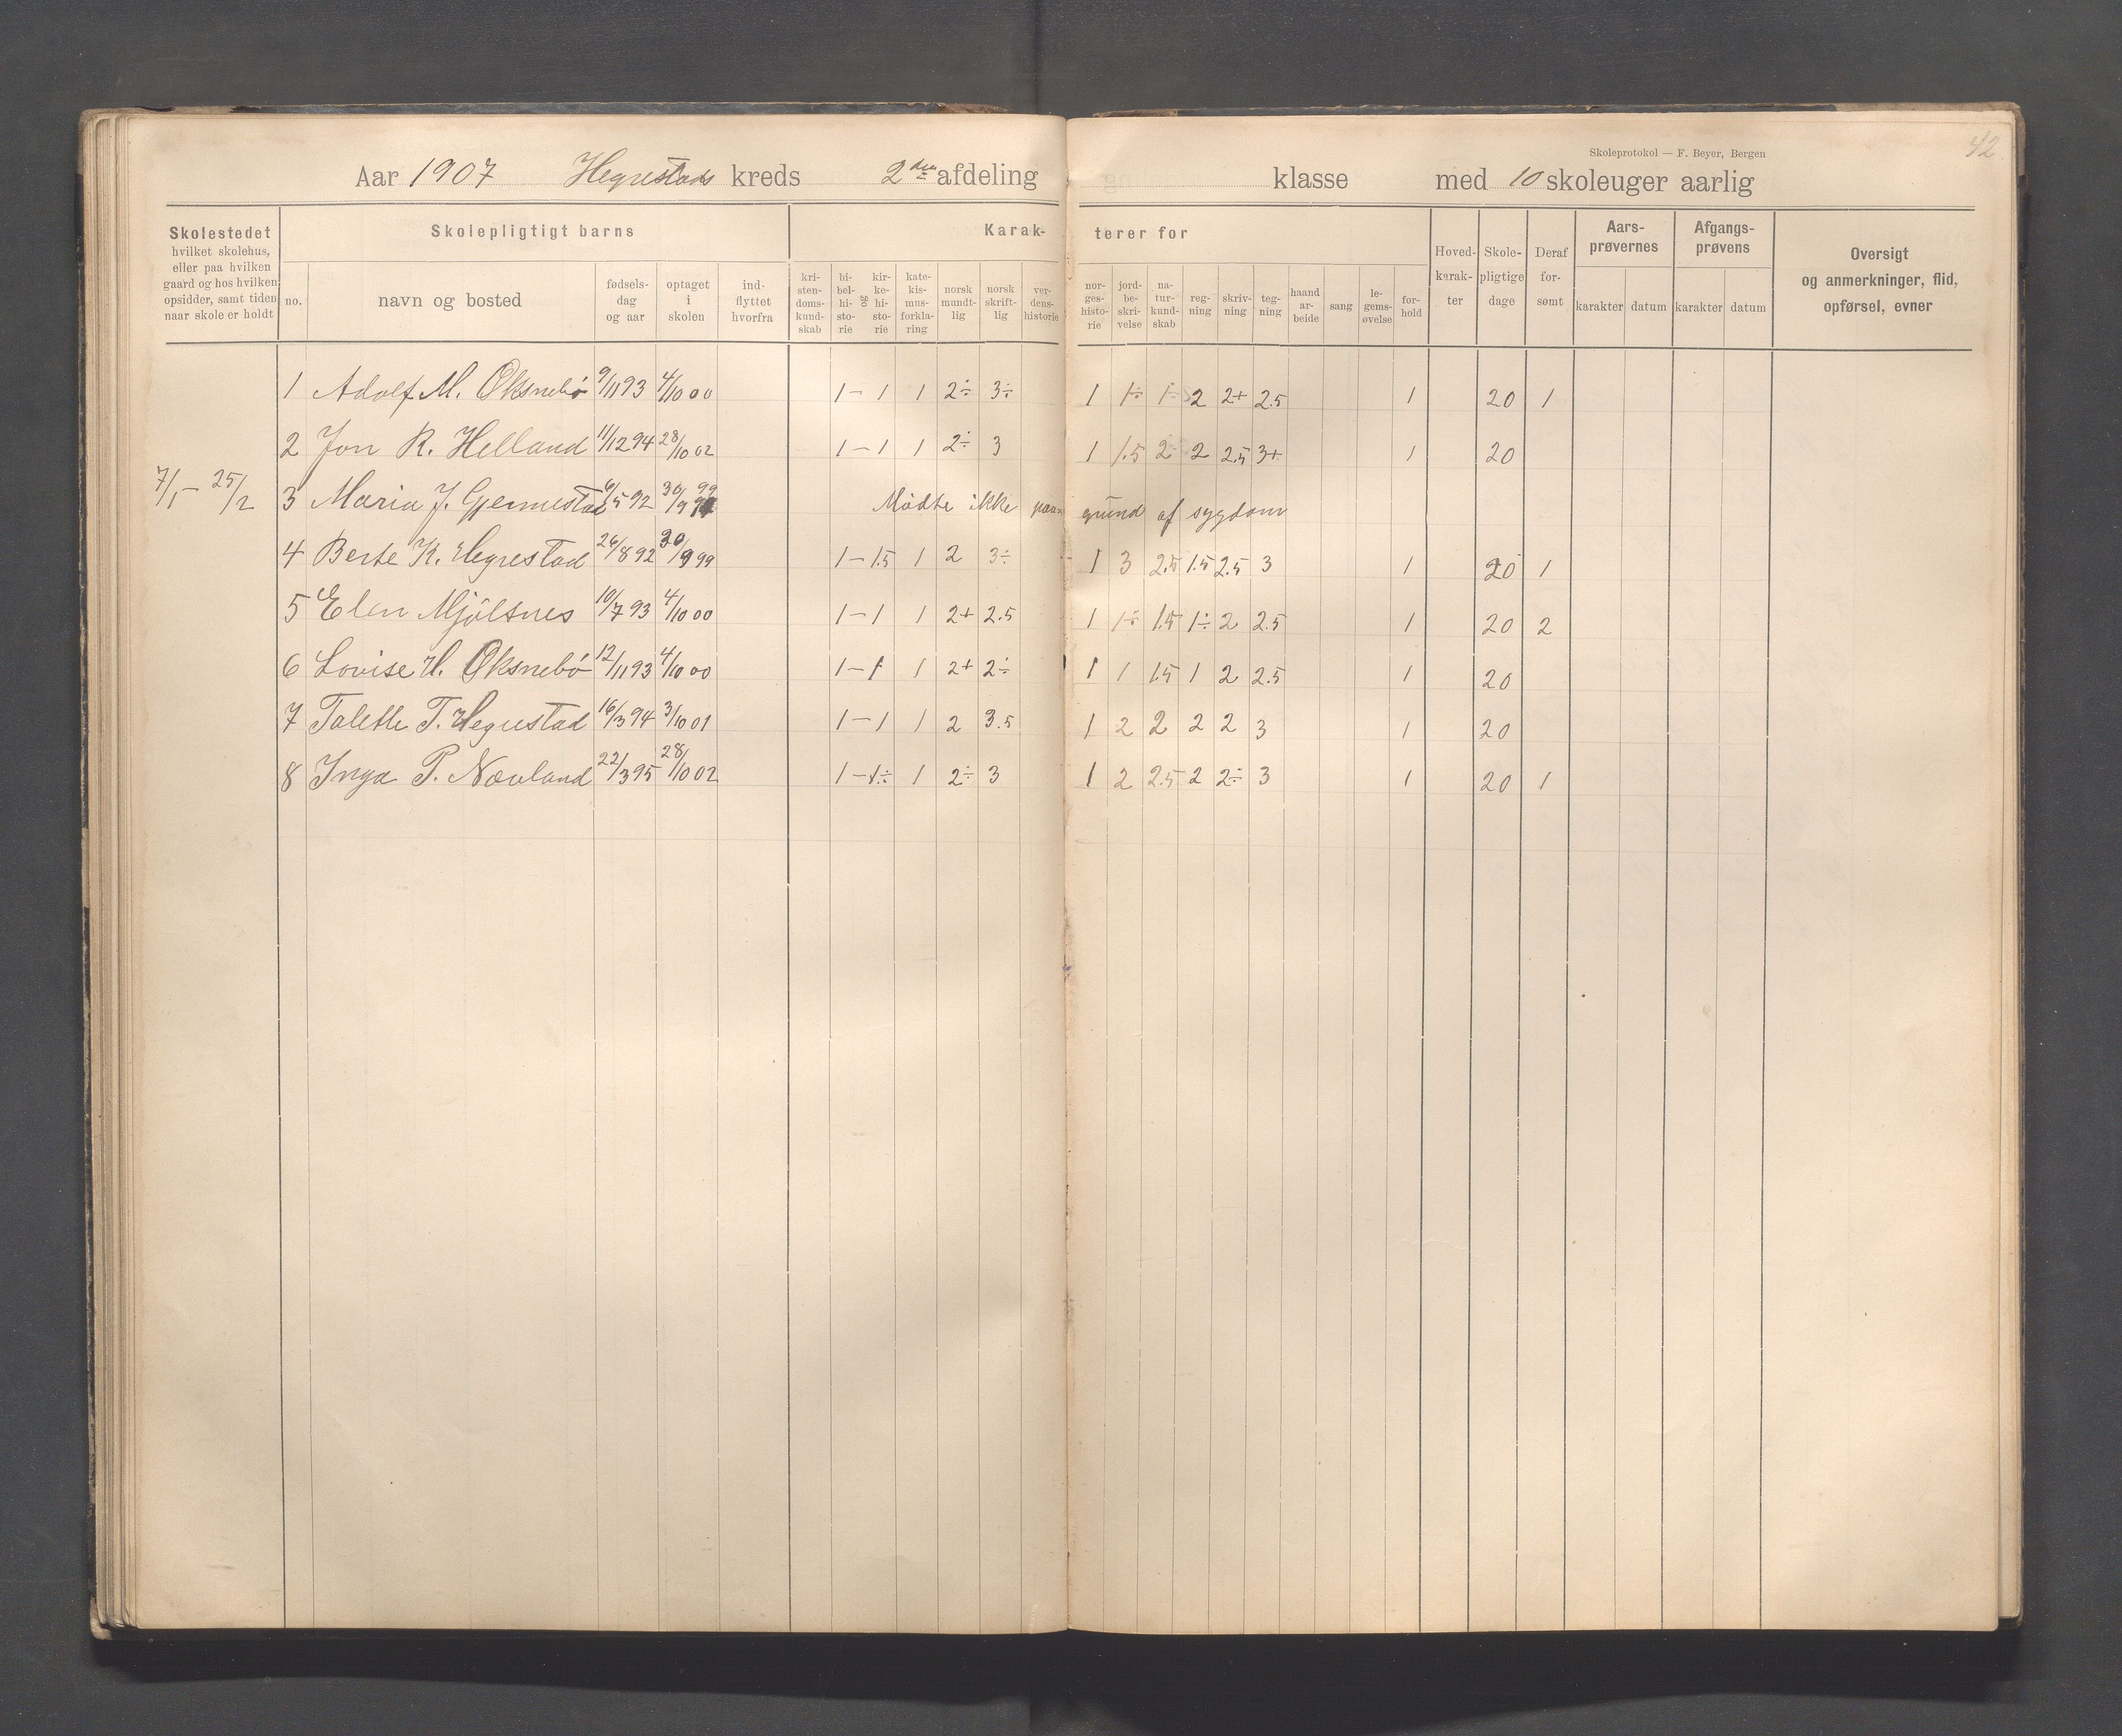 42
Skoleprotokol — F. Beyer, Bergen
Aar 1907 Hegrestads kreds 2den afdeling klasse med 10 skoleuger aarlig
Skolestedet
hvilket skolehus,
eller paa hvilken
gaard og hos hvilken
opsidder, samt tiden
naar skole er holdt
Skolepligtigt barns
no.
navn og bosted
fødsels-
dag
og aar
optaget
i
skolen
ind-
flyttet
hvorfra
Karak- terer for
kri-
sten-
doms-
kund-
skab
bi-
bel-
hi-
sto-
rie
og
kir-
ke-
hi-
sto-
rie
kate-
kis-
mus-
forkla-
ring
norsk
mundt-
lig
norsk
skrift-
lig
ver-
dens-
historie
nor-
ges-
histo-
rie
jord-
be-
skri-
velse
na-
tur-
kund-
skab
reg-
ning
skriv-
ning
teg-
ning
haand
ar-
beide
sang
le-
gems-
øvelse
for-
hold
Hoved-
karak-
ter
Skole-
pligtige
dage
Deraf
for-
sømt
Aars-
prøvernes
karakter datum
Afgangs-
prøvens
karakter datum
Oversigt
og anmerkninger, flid,
opførsel, evner
1 Adolf M. Øksnebø 9/11 93 4/10 00 1 – 1 1 2÷ 3÷ 1 1÷ 1÷ 2 2+ 2.5 1 20 1
2 Jon R. Helland 11/12 94 28/10 02 1 – 1 1 2÷ 3 1 1.5 2÷ 2 2.5 3+ 1 20
7/1 – 25/2 3 Maria J. Gjermestad 6/5 92 30/9 99 Mødte ikke paa grund af sygdom
4 Berte K. Hegrestad 26/8 92 30/9 99 1 – 1.5 1 2 3÷ 1 3 2.5 1.5 2.5 3 1 20 1
5 Elen Mjølsnes 10/7 93 4/10 00 1 – 1 1 2+ 2.5 1 1÷ 1.5 1÷ 2 2.5 1 20 2
6 Lovise H. Øksnebø 12/11 93 4/10 00 1 – 1 1 2+ 2÷ 1 1 1.5 1 2 2.5 1 20
7 Talette T. Hegrestad 16/3 94 3/10 01 1 – 1 1 2 3.5 1 2 2 2 2 3 1 20
8 Inga P. Nævland 22/3 95 28/10 02 1 – 1÷ 1 2÷ 3 1 2 2.5 2 2÷ 3 1 20 1